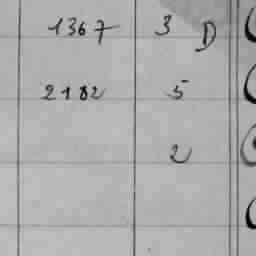 1367 3 D
2182 5
2